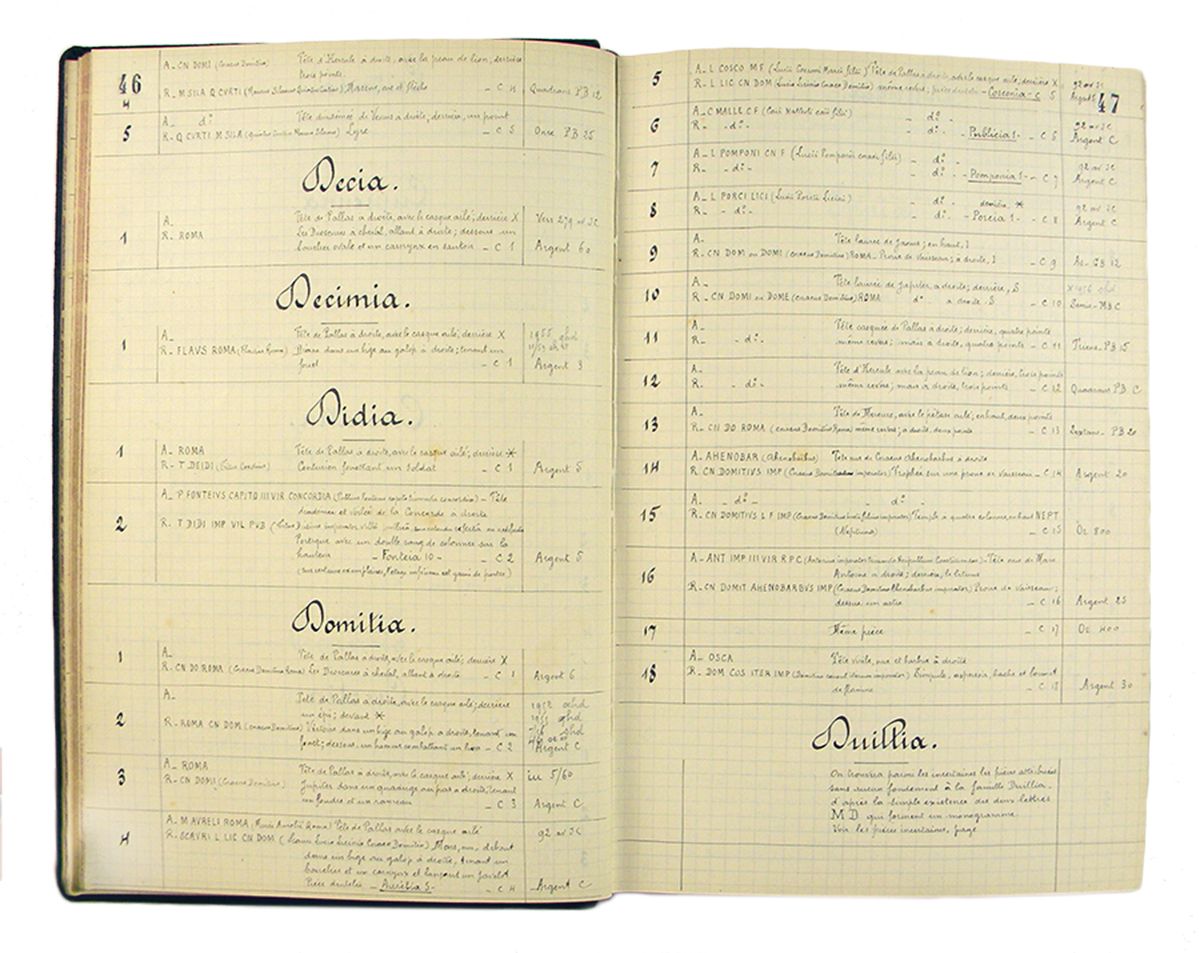 46
A_ CN DOMI (Cnaeus Domitius) Tête d'Hercule à droite, avec la peau de lion; derrière
trois points.
4 R_ M SILA Q CVRTI Massue, arc et flèche _ C 4 Quadrans PB 12
A_ d° Tête diadémée de Venus à droite, derrière, un point
5 R_ Q CVRTI M SILA Lyre _ C 5 Once PB 25
Decia.
A_ Tête de Pallas à droite, avec le casque ailé; derrière X Vers 279 av JC
1 R_ ROMA Les Dioscures à cheval, allant à droite; dessous un
bouclier ovale et un carnyx en sautoir _ C 1 Argent 60
Decimia.
A_ Tête de Pallas à droite, avec le casque ailé; derrière X 1955 ghd
1 R_ FLAVS ROMA (Flavus Roma) Diane dans un bige au galop à droite; tenant un
fouet _ C 1 Argent 3
Didia.
1 A_ ROMA Tête de Pallas à droite, avec le casque ailé; derrière *
R_ T. DEIDI Centurion fouettant un soldat _ C 1 Argent 5
A_ P FONTEIVS CAPITO III VIR CONCORDIA _ Tête
diadémée et voilée de la Concorde à droite
2 R_ T DIDI IMP VIL PVB
Portique avec un double rang de colonnes sur la
hauteur _ Fonteia 10 _ _ C 2 Argent 5
Domitia.
1 A_ Tête de Pallas à droite, avec le casque ailé; derrière X
R_ CN DO ROMA (Cnaeus Domitius Roma) Les Dioscures à cheval, allant à droite _ C 1 Argent 6
A_ Tête de Pallas à droite, avec le casque ailé; derrière 1952 ghd
un épi; devant * 1955 ghd
2 R_ ROMA CN DOM (Cnaeus Domitius) Victoire dans un bige au galop à droite, tenant un ghd
fouet; dessous, un homme combattant un lion _ C 2 Argent C
3 A_ ROMA Tête de Pallas à droite, avec le casque ailé; derrière X iu 5/60
R_ CN DOMI (Cnaeus Domitius) Jupiter dans un quadrige au pas à droite, tenant
un foudre et un rameau _ C 3 Argent C
A_ M AVRELI ROMA Tête de Pallas avec le casque ailé 92 av JC
4 R_ SCAVRI L LIC CN DOM Mars, nu, debout
dans un bige au galop à droite, tenant un
bouclier et un carnyx et lançant un javelot
Pièce dentelée _ Aurelia 5 _ _ C 4 Argent C
47
5 A_ L COSCO M F (Lucii Cosconi Marci filii) Tête de Pallas à droite, avec le casque ailé; derrière X 92 av JC
R_ L LIC CN DOM (Lucius Licinius Cnaeus Domitius) même revers, pièce dentelée _ Cosconia _ C 5 Argent 5
6 A_ C MALLE C F _ d° _ 92 av JC
R_ _ d° _ _ d° _ _ Publicia 1 _ _ C 6 Argent C
7 A_ L POMPONI CN F (Lucii Pomponii cnaei filii) _ d° _ 92 av JC
R_ _ d° _ _ d° _ _ Pomponia 1 _ _ C 7 Argent C
8 A_ L PORCI LICI (Lucii Porcii Licini) _ d° _ derrière * 92 av JC
R_ _ d° _ _ d° _ Porcia 1 _ _ C 8 Argent C
A_ Tête laurée de Janus; en haut, I
9 R_ CN DOM ou DOMI (Cnaeus Domitius) ROMA _ Proue de vaisseau; à droite, I _ C 9 As _ GB 12
A_ Tête laurée de Jupiter, à droite; derrière, S X 1956 ghd
10 R_ CN DOMI ou DOME (Cnaeus Domitius) ROMA d° à droite S _ C 10 Semis _ MB C
11 A_ Tête casquée de Pallas à droite; derrière, quatre points
R_ _ d° _ même revers; mais à droite, quatre points _ C 11 Triens _ PB 15
12 A_ Tête d'Hercule avec la peau de lion; derrière, trois points
R_ _ d° _ même revers; mais à droite, trois points _ C 12 Quadrans PB C
A_ Tête de Mercure, avec le pétase ailé; en haut, deux points
13 R_ CN DO ROMA (Cnaeus Domitius Roma) même revers; à droite, deux points _ C 13 Sextans _ PB 20
14 A_ AHENOBAR (Ahenobarbus) Tête nue de Cnaeus Ahenobarbus à droite
R_ CN DOMITIVS IMP (Cnaeus Domitius imperator) Trophée sur une proue de vaisseau _ C 14 Argent 20
A_ _ d° _ d° _
15 R_ CN DOMITIVS L F IMP (Cnaeus Domitius Lucii filius imperator) Temple à quatre colonnes; en haut NEPT
(Neptunus) _ C 15 Or 800
A_ ANT IMP III VIR R P C _ Tête nue de Marc
16 Antoine à droite; derrière, le lituus
R_ CN DOMIT AHENOBARBVS IMP (Cnaeus Domitius Ahenobarbus imperator) Proue de vaisseau;
dessus un astre _ C 16 Argent 25
17 Même pièce _ C 17 Or 400
A_ OSCA Tête virile, nue et barbue à droite
18 R_ DOM COS ITER IMP (Domitius consul iterum imperator) Simpule, aspersoir, hache et bonnet
de flamine _ C 18 Argent 30
Duillia.
On trouvera parmi les incertaines les pièces attribuées
sans aucun fondement à la famille Duillia _
d'après la simple existence des deux lettres
M D qui forment un monogramme
Voir les pièces incertaines, page